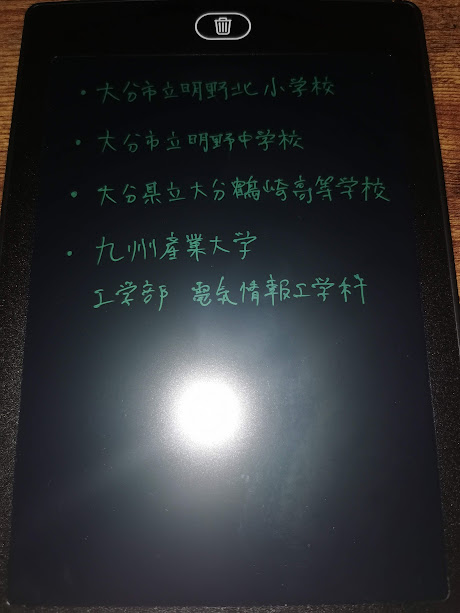 ・大分市立明野北小学校
・大分市立明野中学校
・大分県立大分鶴崎高等学校
・九州産業大学
工学部 電気情報工学科